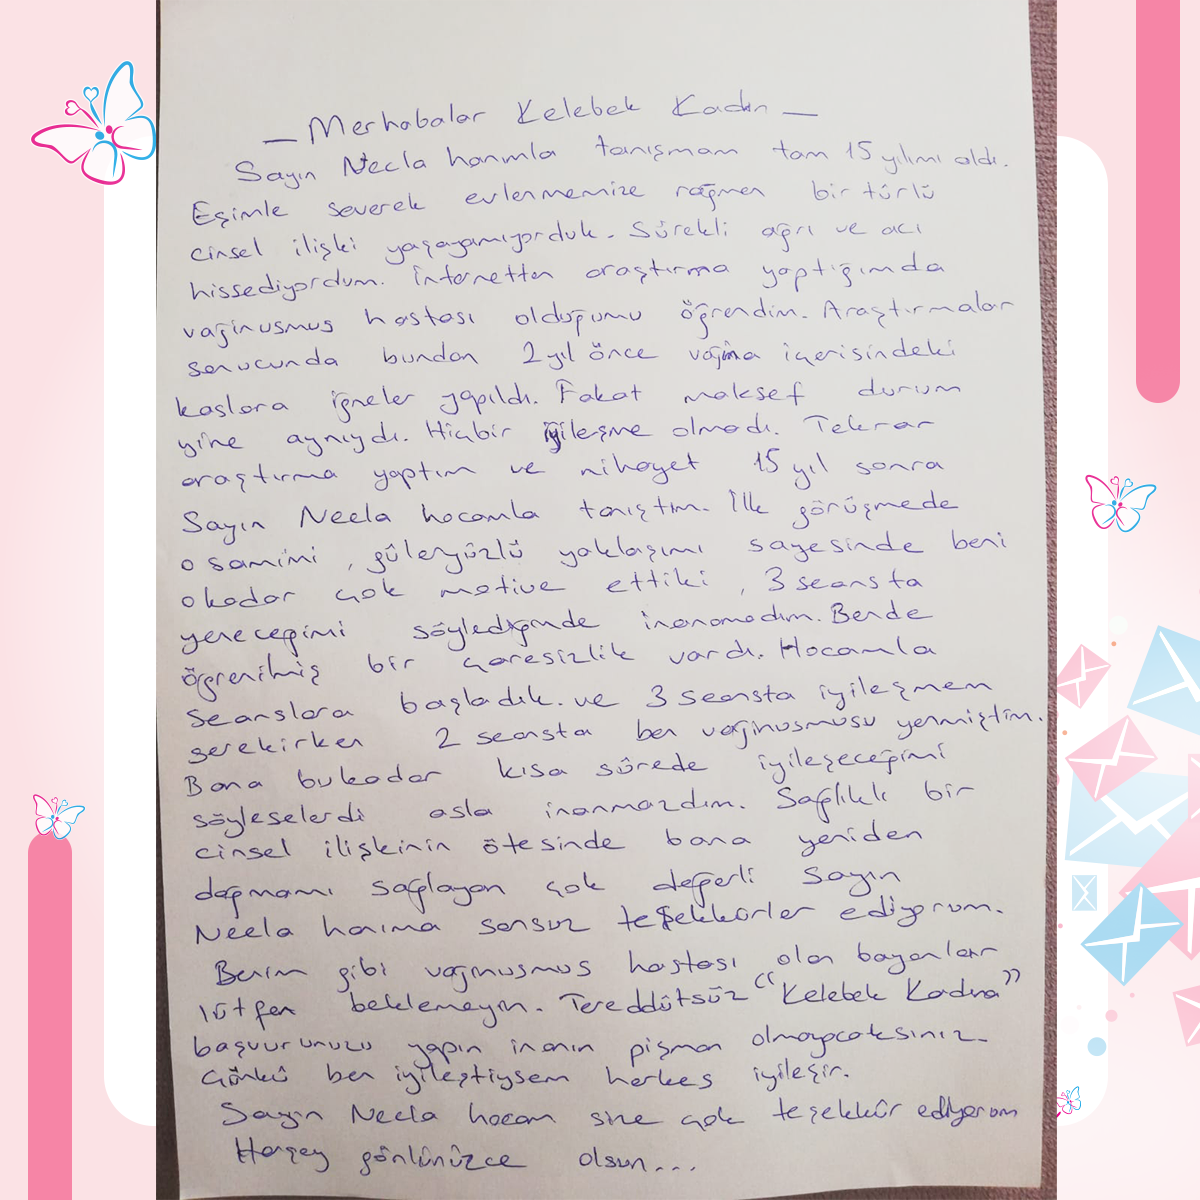 — Merhabalar Kelebek Kadın —
Sayın Necla hanımla tanışmam tam 15 yılımı aldı.
Eşimle severek evlenmemize rağmen bir türlü
cinsel ilişki yaşayamıyorduk. Sürekli ağrı ve acı
hissediyordum. İnternetten araştırma yaptığımda
vajinusmus hastası olduğumu öğrendim. Araştırmalar
sonucunda bundan 2 yıl önce vajina içerisindeki
kaslara iğneler yapıldı. Fakat maksef durum
yine aynıydı. Hiçbir iyileşme olmadı. Tekrar
araştırma yaptım ve nihayet 15 yıl sonra
Sayın Necla hocamla tanıştım. İlk görüşmede
o samimi, güleryüzlü yaklaşımı sayesinde beni
okadar çok motive ettiki, 3 seansta
yeneceğimi söylediğinde inanamadım. Bende
öğrenilmiş bir çaresizlik vardı. Hocamla
seanslara başladık. ve 3 seansta iyileşmem
gerekirken 2 seansta ben vajinusmusu yenmiştim.
Bana bukadar kısa sürede iyileşeceğimi
söyleselerdi asla inanmazdım. Sağlıklı bir
cinsel ilişkinin ötesinde bana yeniden
doğmamı sağlayan çok değerli Sayın
Necla hanıma sonsuz teşekkürler ediyorum.
Benim gibi vajinusmus hastası olan bayanlar
lütfen beklemeyin. Tereddütsüz "Kelebek Kadına"
başvurunuzu yapın inanın pişman olmayacaksınız.
Çünkü ben iyileştiysem herkes iyileşir.
Sayın Necla hocam size çok teşekkür ediyorum
Herşey gönlünüzce olsun...